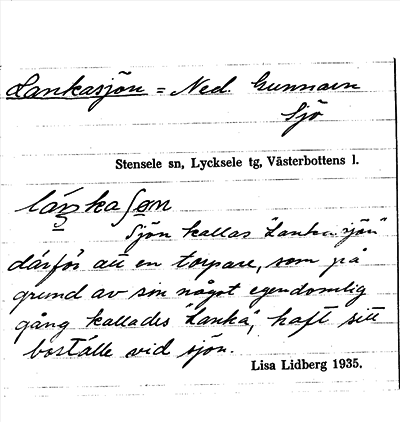 Lankasjön = Ned. Gunnarn
Sjö
Stensele sn, Lycksele tg, Västerbottens l.
láŋkaʃøn
Sjön kallas "Lankasjön"
därför att en torpare, som på
grund av sin något egendomlig
gång kallades "Lanka", haft sitt
boställe vid sjön.
Lisa Lidberg 1935.